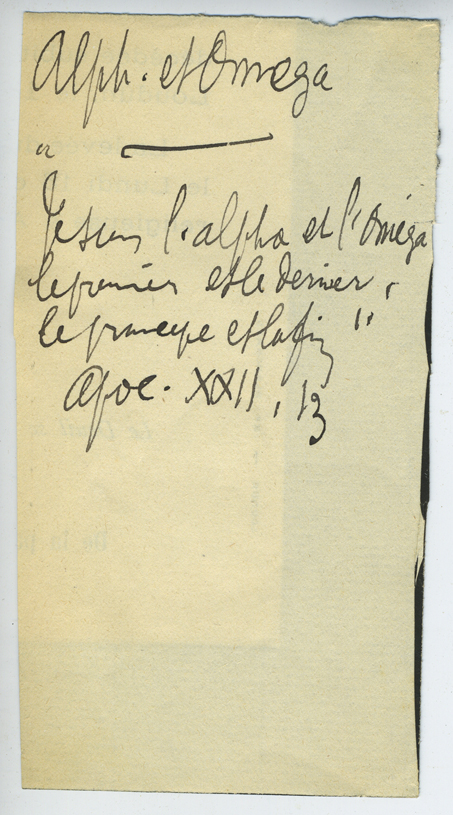 Alph. et Omega
"
Je suis l'alpha et l'Oméga
le premier et le dernier,
le principe et la fin "
Apoc. XXII, 13